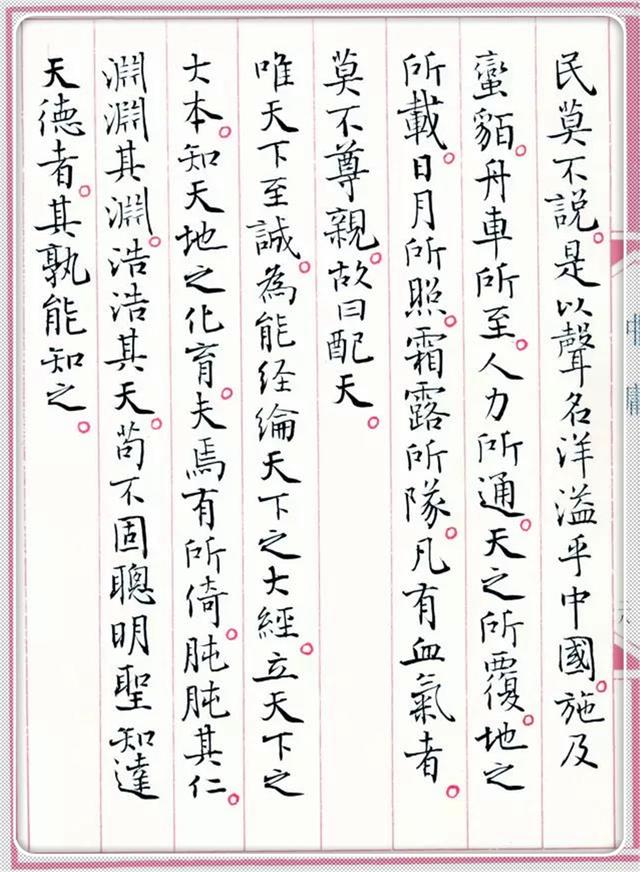 民莫不説。是以聲名洋溢乎中國。施及
蠻貊。舟車所至。人力所通。天之所覆。地之
所載。日月所照。霜露所隊。凡有血氣者。
莫不尊親。故曰配天。
唯天下至誠。為能經綸天下之大經。立天下之
大本。知天地之化育。夫焉有所倚。肫肫其仁。
淵淵其淵。浩浩其天。苟不固聰明聖知達
天德者。其孰能知之。
中庸